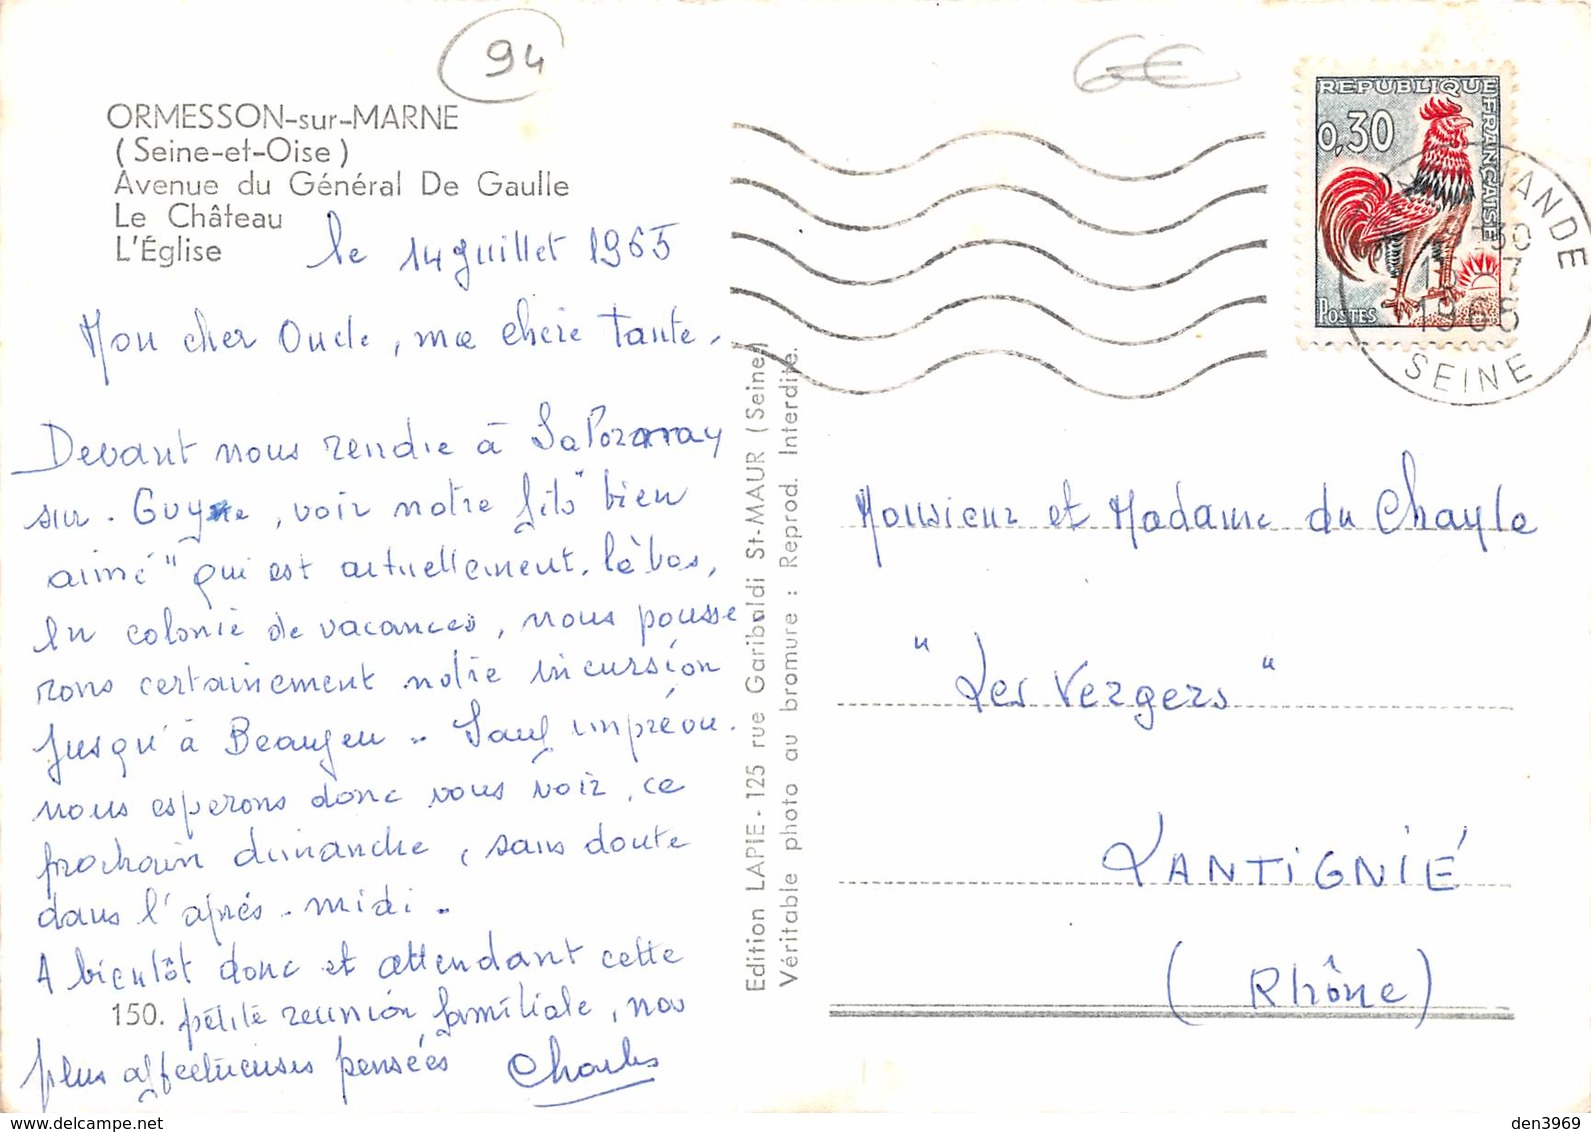 94
6€
ORMESSON-sur-MARNE
(Seine-et-Oise)
Avenue du Général De Gaulle
Le Château
L'Église
le 14 juillet 1965
Mon cher Oncle, ma chère Tante,
Devant nous rendre à
sur. Guyne, voir notre fils "bien
aimé" qui est actuellement, là bas,
en colonie de vacances, nous pousse
rons certainement notre incursion
jusqu'à Beaujeu.. Sauf imprévu.
nous esperons donc vous voir, ce
prochain dimanche, sans doute
dans l'après-midi.
A bientôt donc et attendant cette
150. petite reunion familiale, nos
plus affectueuses pensées Charles
Edition LAPIE - 125 rue Garibaldi St-MAUR (Seine)
Véritable photo au bromure : Reprod. Interdite.
REPUBLIQUE FRANÇAISE
0,30
POSTES
1965
SEINE
Monsieur et Madame du Chayla
"Les Vergers"
LANTIGNIÉ
(Rhône)
den3969